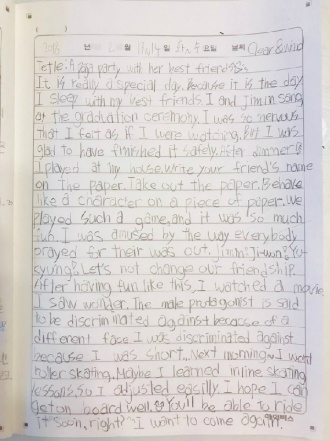 년 월 14 일 요일 날씨 Clear & wind
Title: A party with her best friends
It is really a special day. Because it is the day
I sleep with my best friends. I and Jimin song
at the graduation ceremony. I was so nervous
That I felt as if I were watching. But I was
glad to have finished it safely. After dinner
I played at my house. write your friend's name
on the paper. Take out the paper. Behave
like a character on a piece of paper. We
played such a game, and it was so much
fun. I was amused by the way everybody
prayed for their was out. Jimin! Ji-won! Yu-
kyung! Let's not change our friendship.
After having fun like this, I watched a movie.
I saw wonder. The male protagonist is said
to be discriminated against because of a
different face I was discriminated against
because I was short. Next morning~ I went
roller skating. Maybe I learned inline skating
lessons. So I adjusted easilly. I hope I can
get on board well. You'll be able to ride
it soon, right? ~ I want to come again!